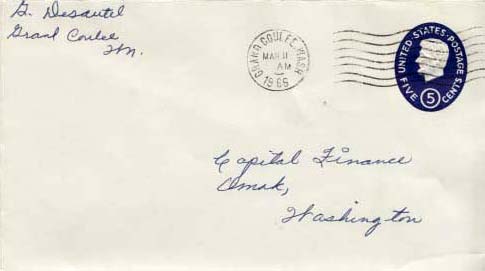 G. Desautel
Grand Coulee
Wn.
GRAND COULEE, WASH.
MAR 11
AM
1966
UNITED STATES · POSTAGE
FIVE 5 CENTS
Capital Finance
Omak,
Washington